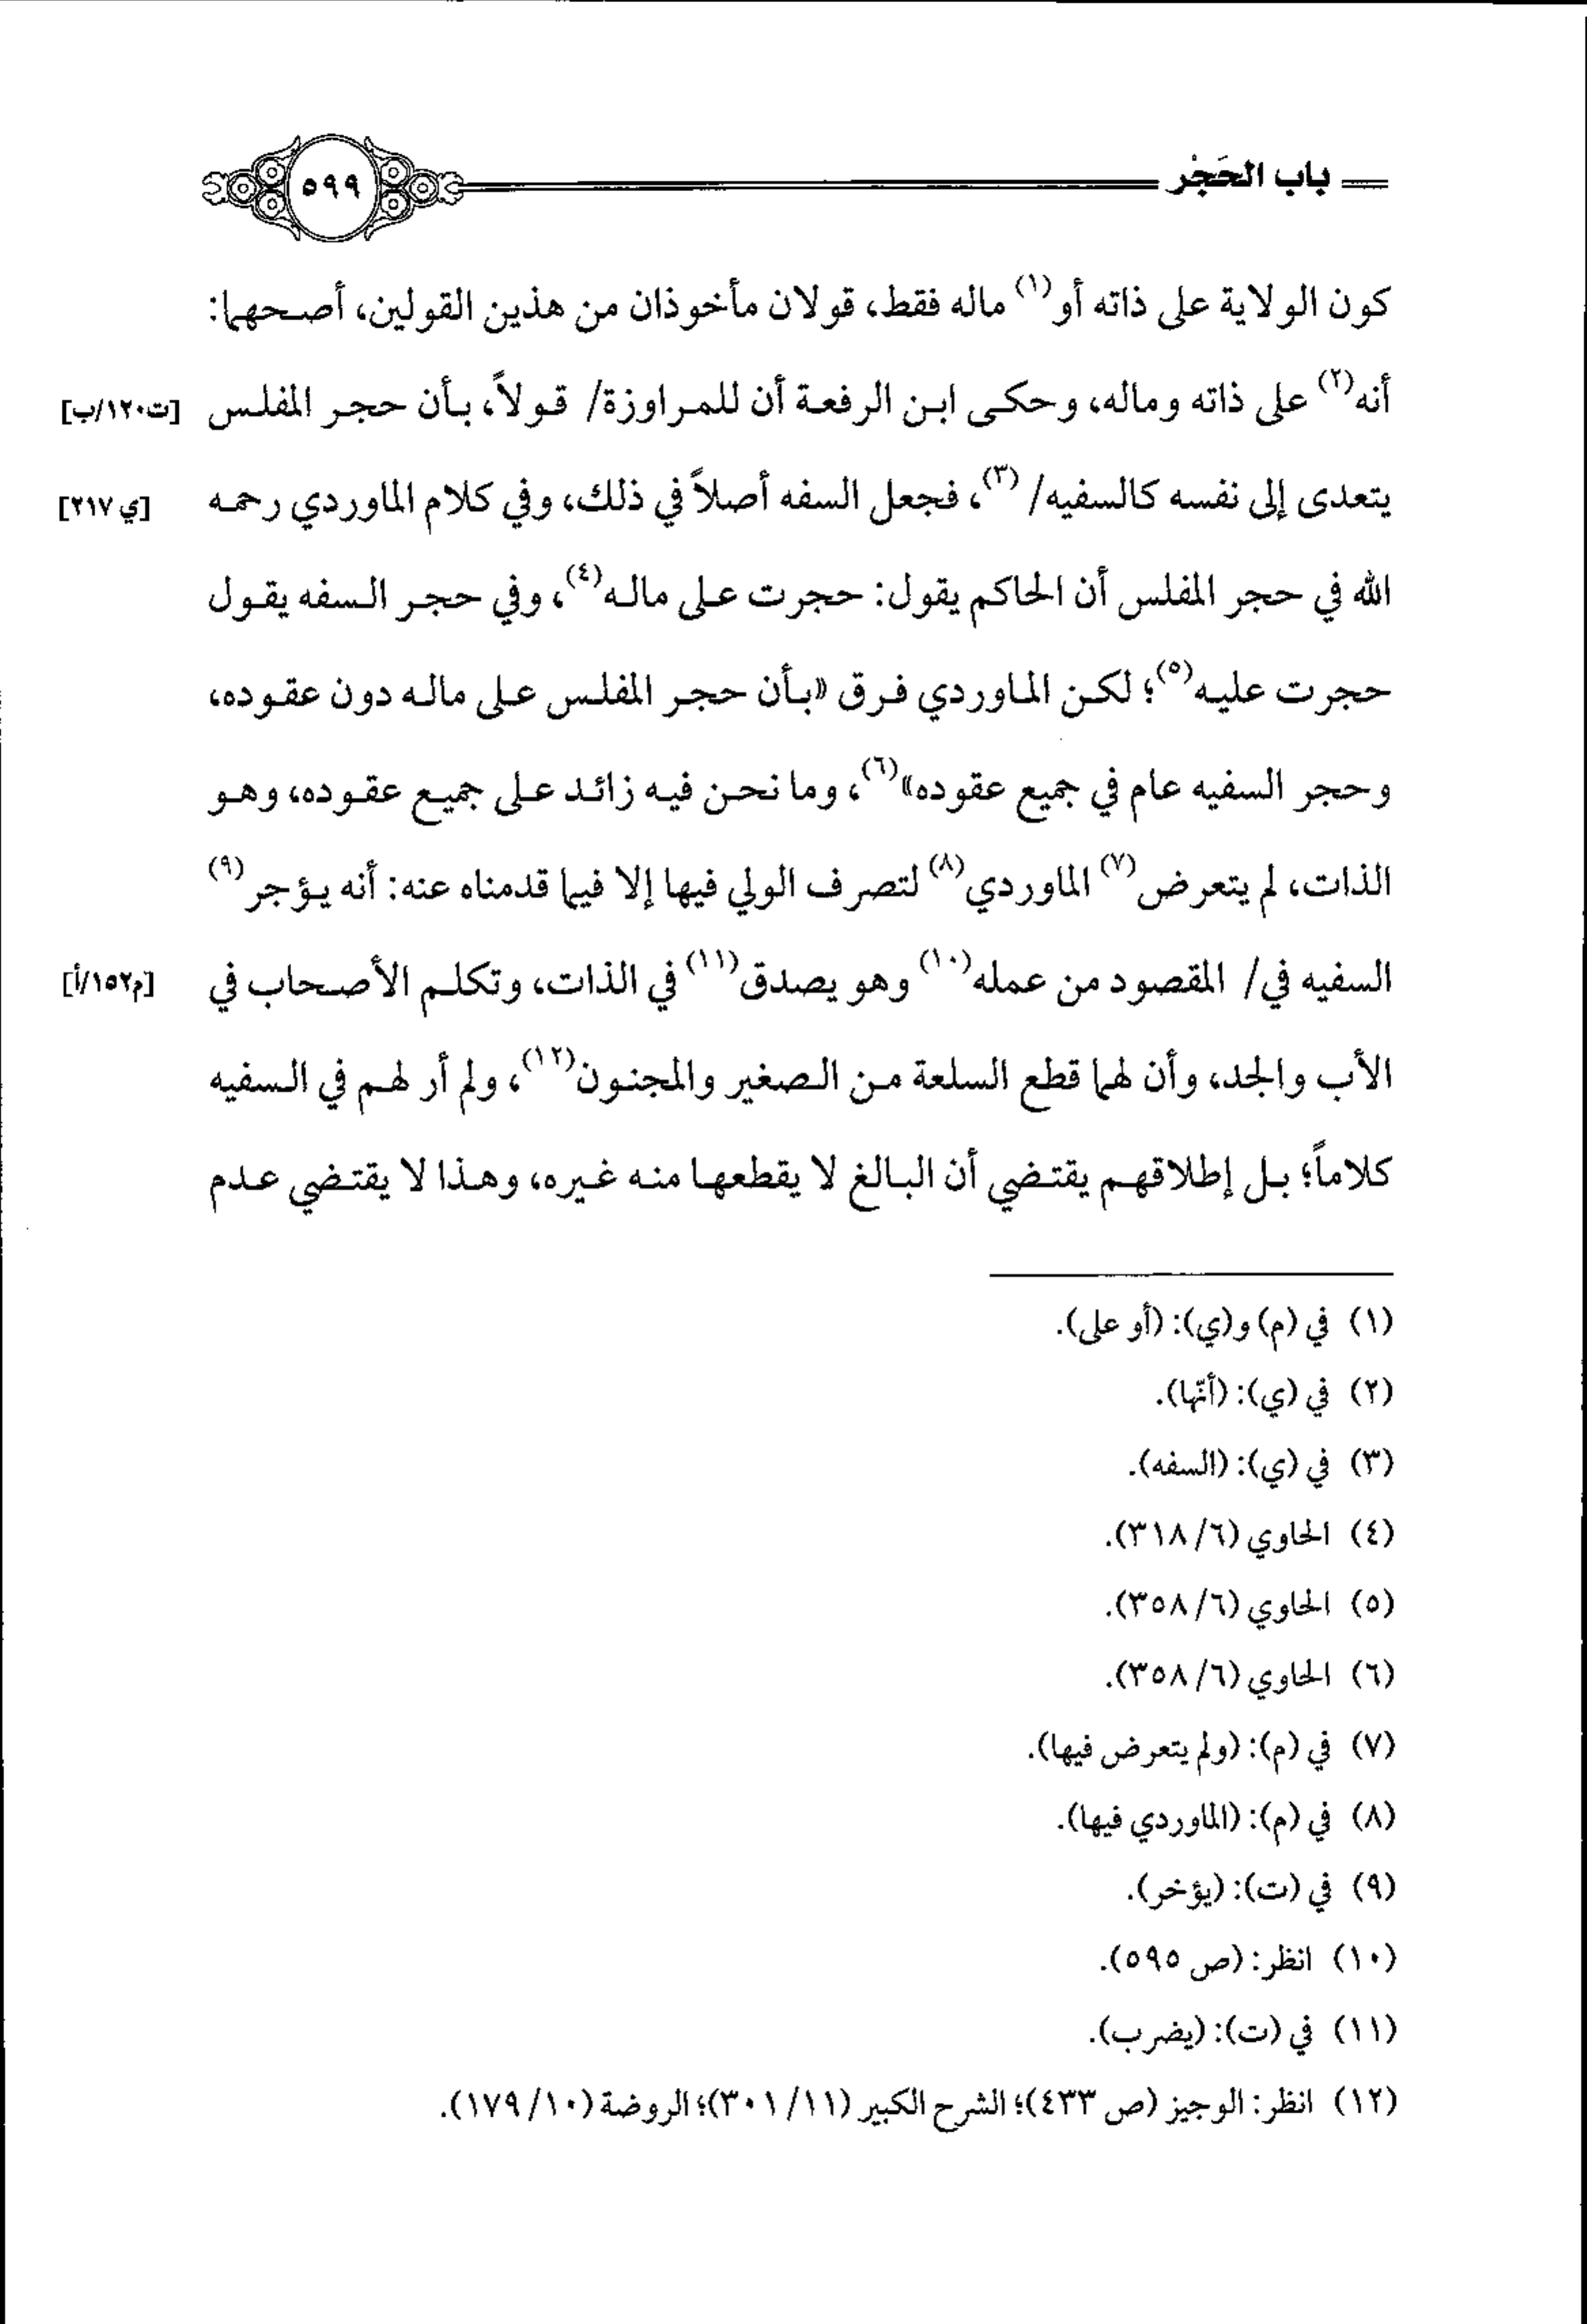 باب الحَجْر
٥٩٩
كون الولاية على ذاته أو(١) ماله فقط، قولان مأخوذان من هذين القولين، أصحهما:
أنه(٢) على ذاته وماله، وحكى ابن الرفعة أن للمراوزة/ قولاً، بأن حجر المفلس [ت١٢٠/ب]
يتعدى إلى نفسه كالسفيه/(٣)، فجعل السفه أصلاً في ذلك، وفي كلام الماوردي رحمه [ي ٢١٧]
الله في حجر المفلس أن الحاكم يقول: حجرت على ماله(٤)، وفي حجر السفه يقول
حجرت عليه(٥)؛ لكن الماوردي فرق «بأن حجر المفلس على ماله دون عقوده،
وحجر السفيه عام في جميع عقوده»(٦)، وما نحن فيه زائد على جميع عقوده، وهو
الذات، لم يتعرض(٧) الماوردي(٨) لتصرف الولي فيها إلا فيما قدمناه عنه: أنه يؤجر(٩)
السفيه في/ المقصود من عمله(١٠) وهو يصدق(١١) في الذات، وتكلم الأصحاب في [م١٥٢/أ]
الأب والجد، وأن لهما قطع السلعة من الصغير والمجنون(١٢)، ولم أر لهم في السفيه
كلاماً؛ بل إطلاقهم يقتضي أن البالغ لا يقطعها منه غيره، وهذا لا يقتضي عدم
(١) في (م) و(ي): (أو على).
(٢) في (ي): (أنّها).
(٣) في (ي): (السفه).
(٤) الحاوي (٦/ ٣١٨).
(٥) الحاوي (٦/ ٣٥٨).
(٦) الحاوي (٦/ ٣٥٨).
(٧) في (م): (ولم يتعرض فيها).
(٨) في (م): (الماوردي فيها).
(٩) في (ت): (يؤخر).
(١٠) انظر: (ص ٥٩٥).
(١١) في (ت): (يضرب).
(١٢) انظر: الوجيز (ص ٤٣٣)؛ الشرح الكبير (١١/ ٣٠١)؛ الروضة (١٠/ ١٧٩).